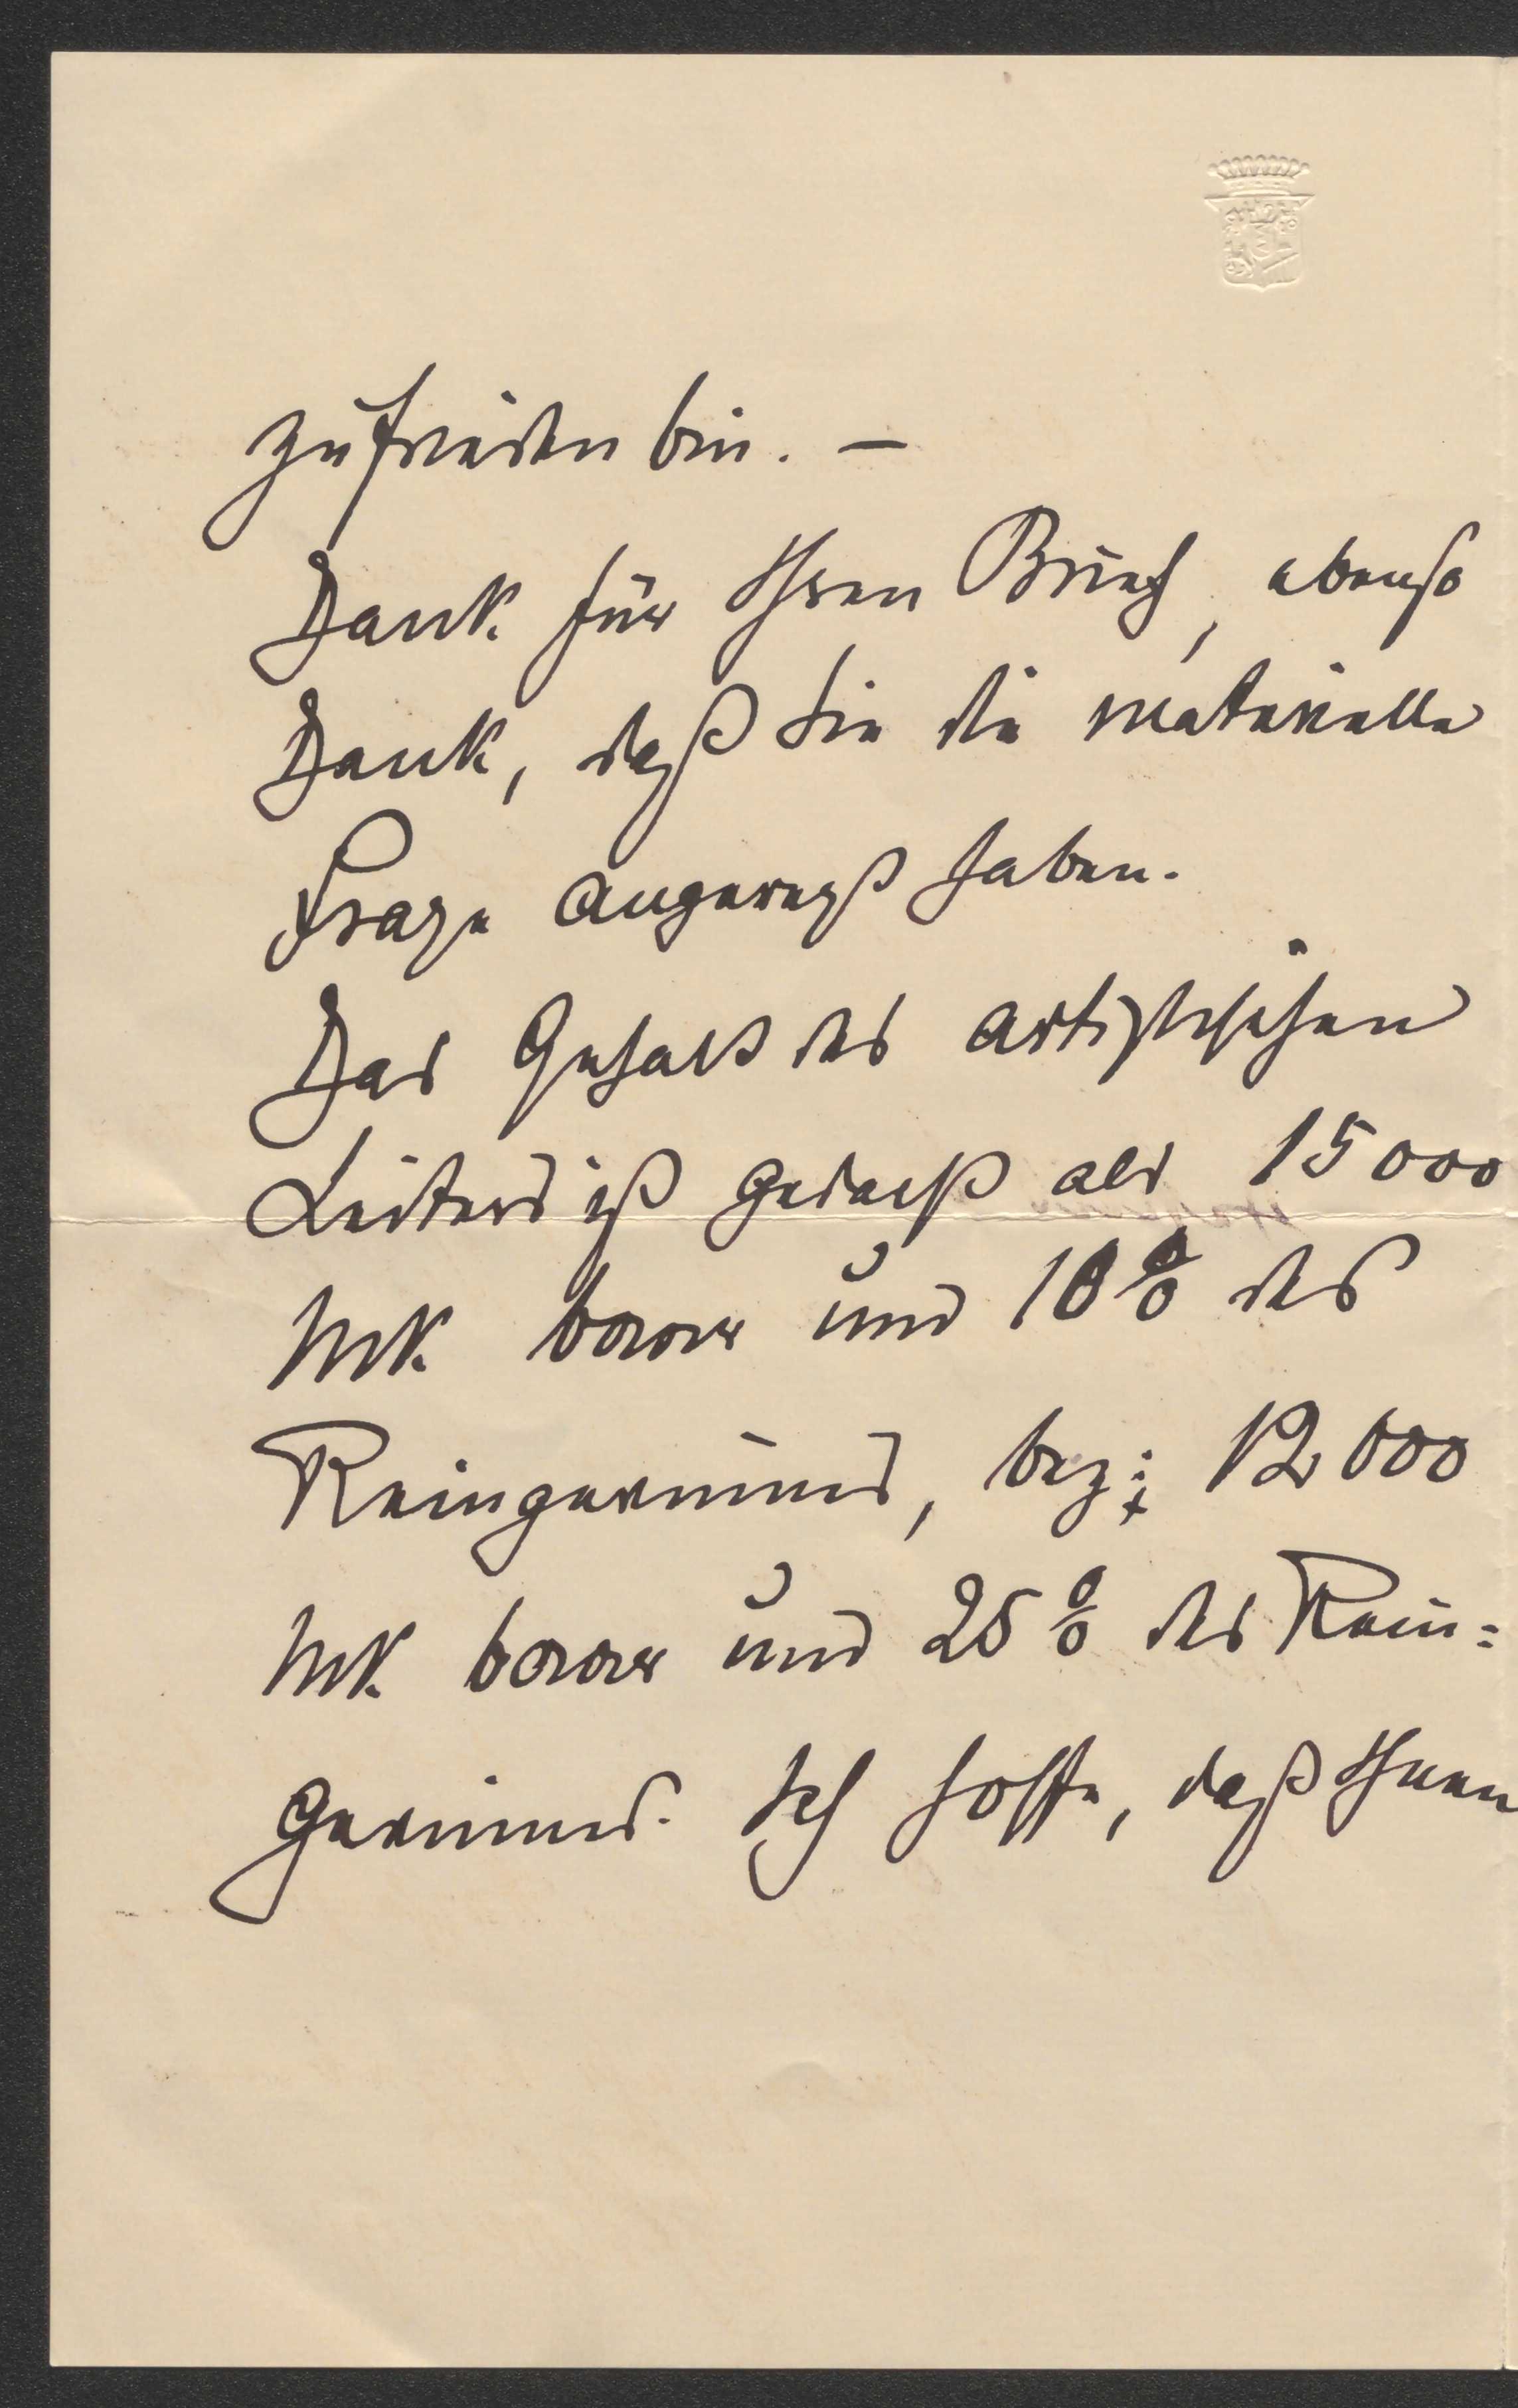 zufrieden bin. –
Dank für Ihren Brief, ebenso
Dank, daß Sie die materielle
Frage angeregt haben.
Das Gehalt des artistischen
Leiters ist gedacht als 15000
Mk baar und 10% des
Reingewinns, bez: 12000
Mk baar und 25% des Rein=
gewinns. Ich hoffe, daß Ihnen